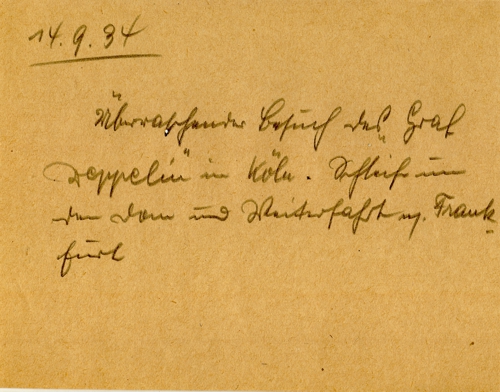 14.9.34
Überraschender Besuch des „Graf
Zeppelin" in Köln. Schleife um
den Dom und Weiterfahrt n. Frank-
furt